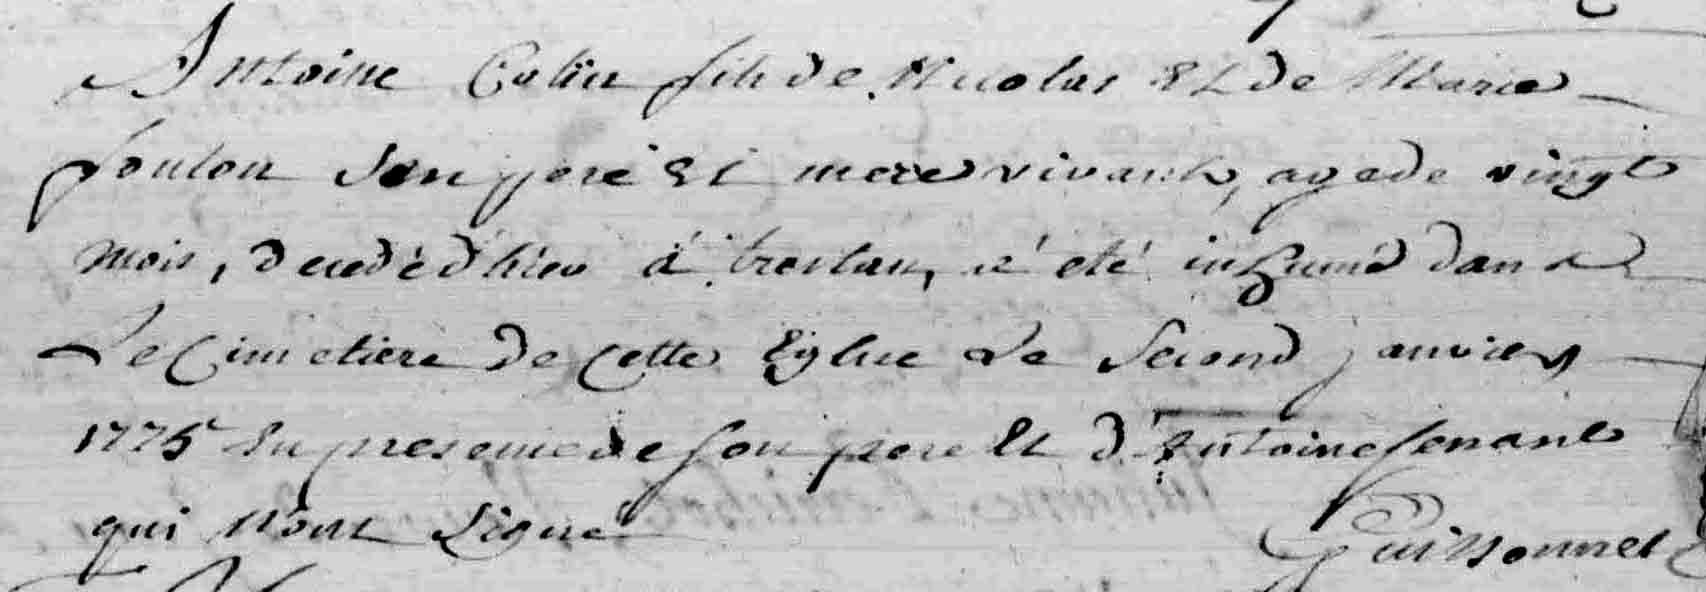 Antoine Colin fils de Nicolas Et de Marie
foulon Son pere Et mere vivants, agé de vingt
mois, decedé d'hier à treslan, a été inhumé dans
Le Cimetiere de Cette Eglise Le Second janvier
1775 En presence de son pere Et d'Antoine ferrant
qui n'ont Signé
Guissonnet